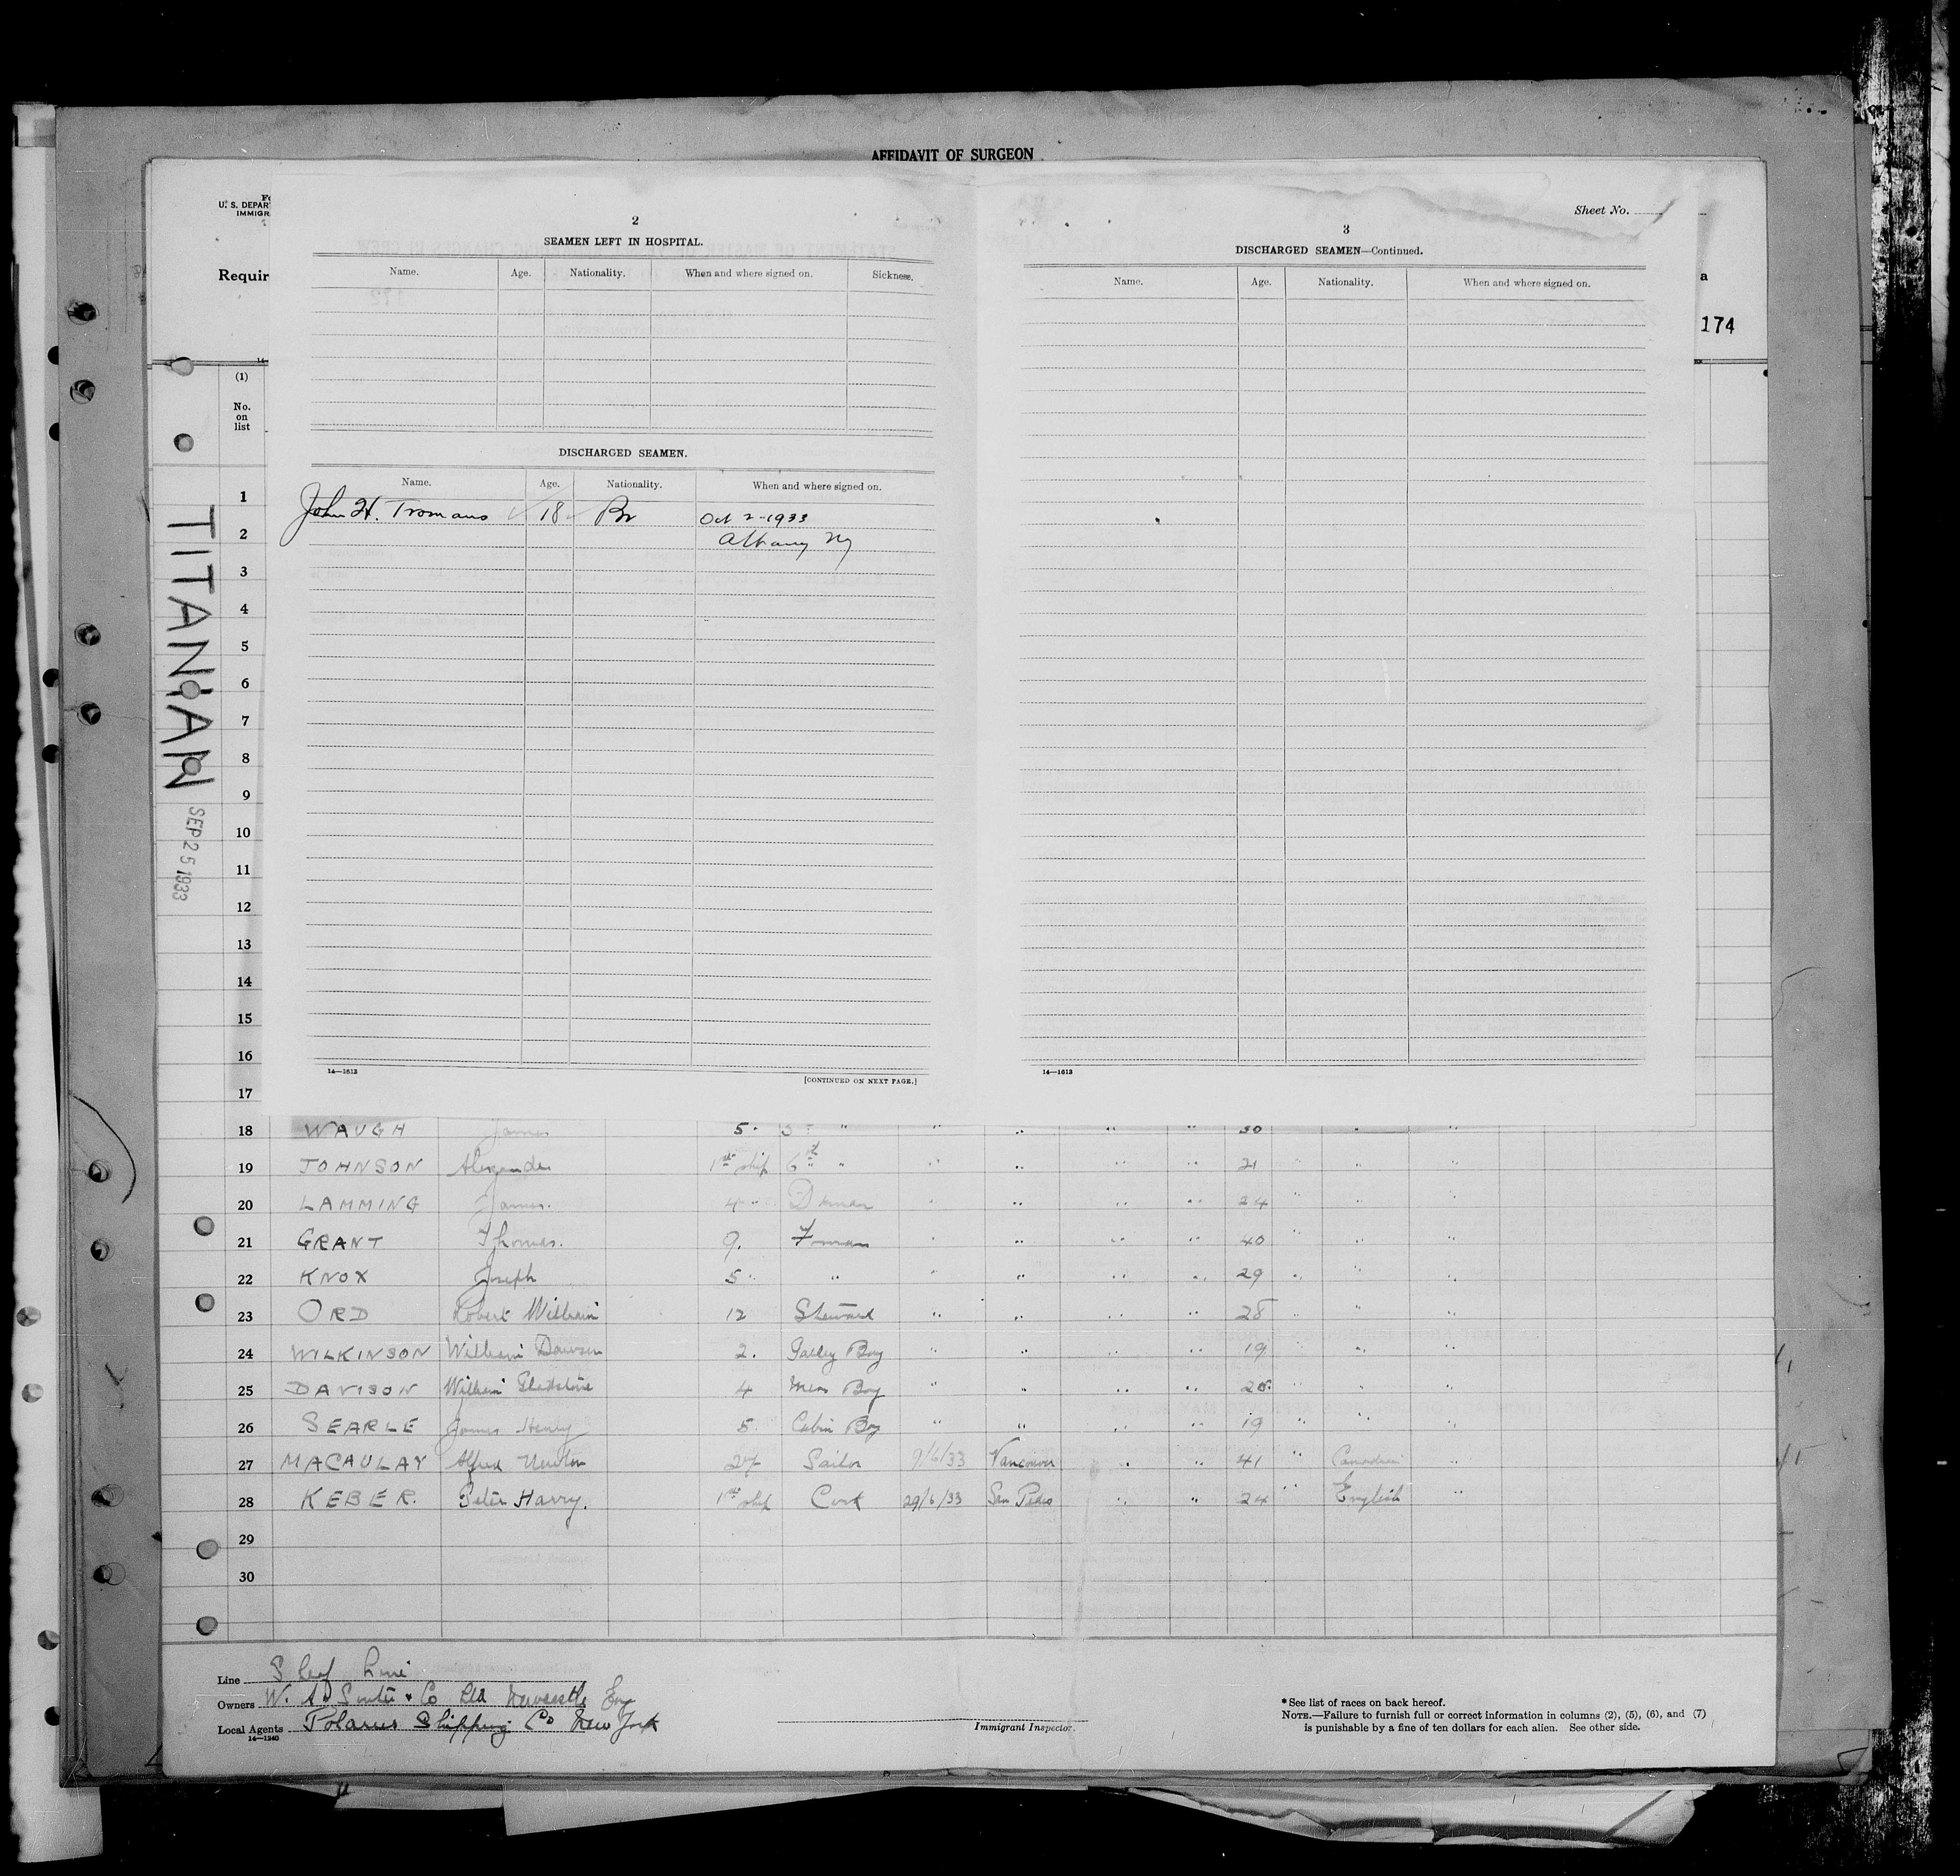 AFFIDAVIT OF SURGEON
U. S. DEPAR
IMMIGR
Requir
Sheet No.
a
174
2
SEAMEN LEFT IN HOSPITAL.
Name. Age. Nationality. When and where signed on. Sickness.
DISCHARGED SEAMEN.
Name. Age. Nationality. When and where signed on.
John H. Tromans 18 Br Oct 2-1933
Albany NY
14—1613
[CONTINUED ON NEXT PAGE.]
3
DISCHARGED SEAMEN—Continued.
Name. Age. Nationality. When and where signed on.
14—1613
TITANIAN
SEP 25 1933
(1)
No.
on
list
1
2
3
4
5
6
7
8
9
10
11
12
13
14
15
16
17
18 WAUGH James 5 " 30
19 JOHNSON Alexander 1st ship 6th " 21
20 LAMMING James. 4 " Dkman 24
21 GRANT Thomas. 9. Fman 40
22 KNOX Joseph 5 " " 29
23 ORD Robert William 12 Steward 28
24 WILKINSON William Dawson 2. Galley Boy 19
25 DAVISON William Gladstone 4 Mess Boy 20
26 SEARLE James Henry 5. Cabin Boy 19
27 MACAULAY Alfred Newton 27 Sailor 9/6/33 Vancouver " " 41 " Canadian "
28 KEBER. Peter Harry. 1st ship Cook 29/6/33 San Pedro " " 24 " English "
29
30
Line Line
Owners W. A. & Co Ltd Newcastle Eng
Local Agents Polarus Shipping Co New York
14—1240
Immigrant Inspector.
*See list of races on back hereof.
NOTE.—Failure to furnish full or correct information in columns (2), (5), (6), and (7)
is punishable by a fine of ten dollars for each alien. See other side.